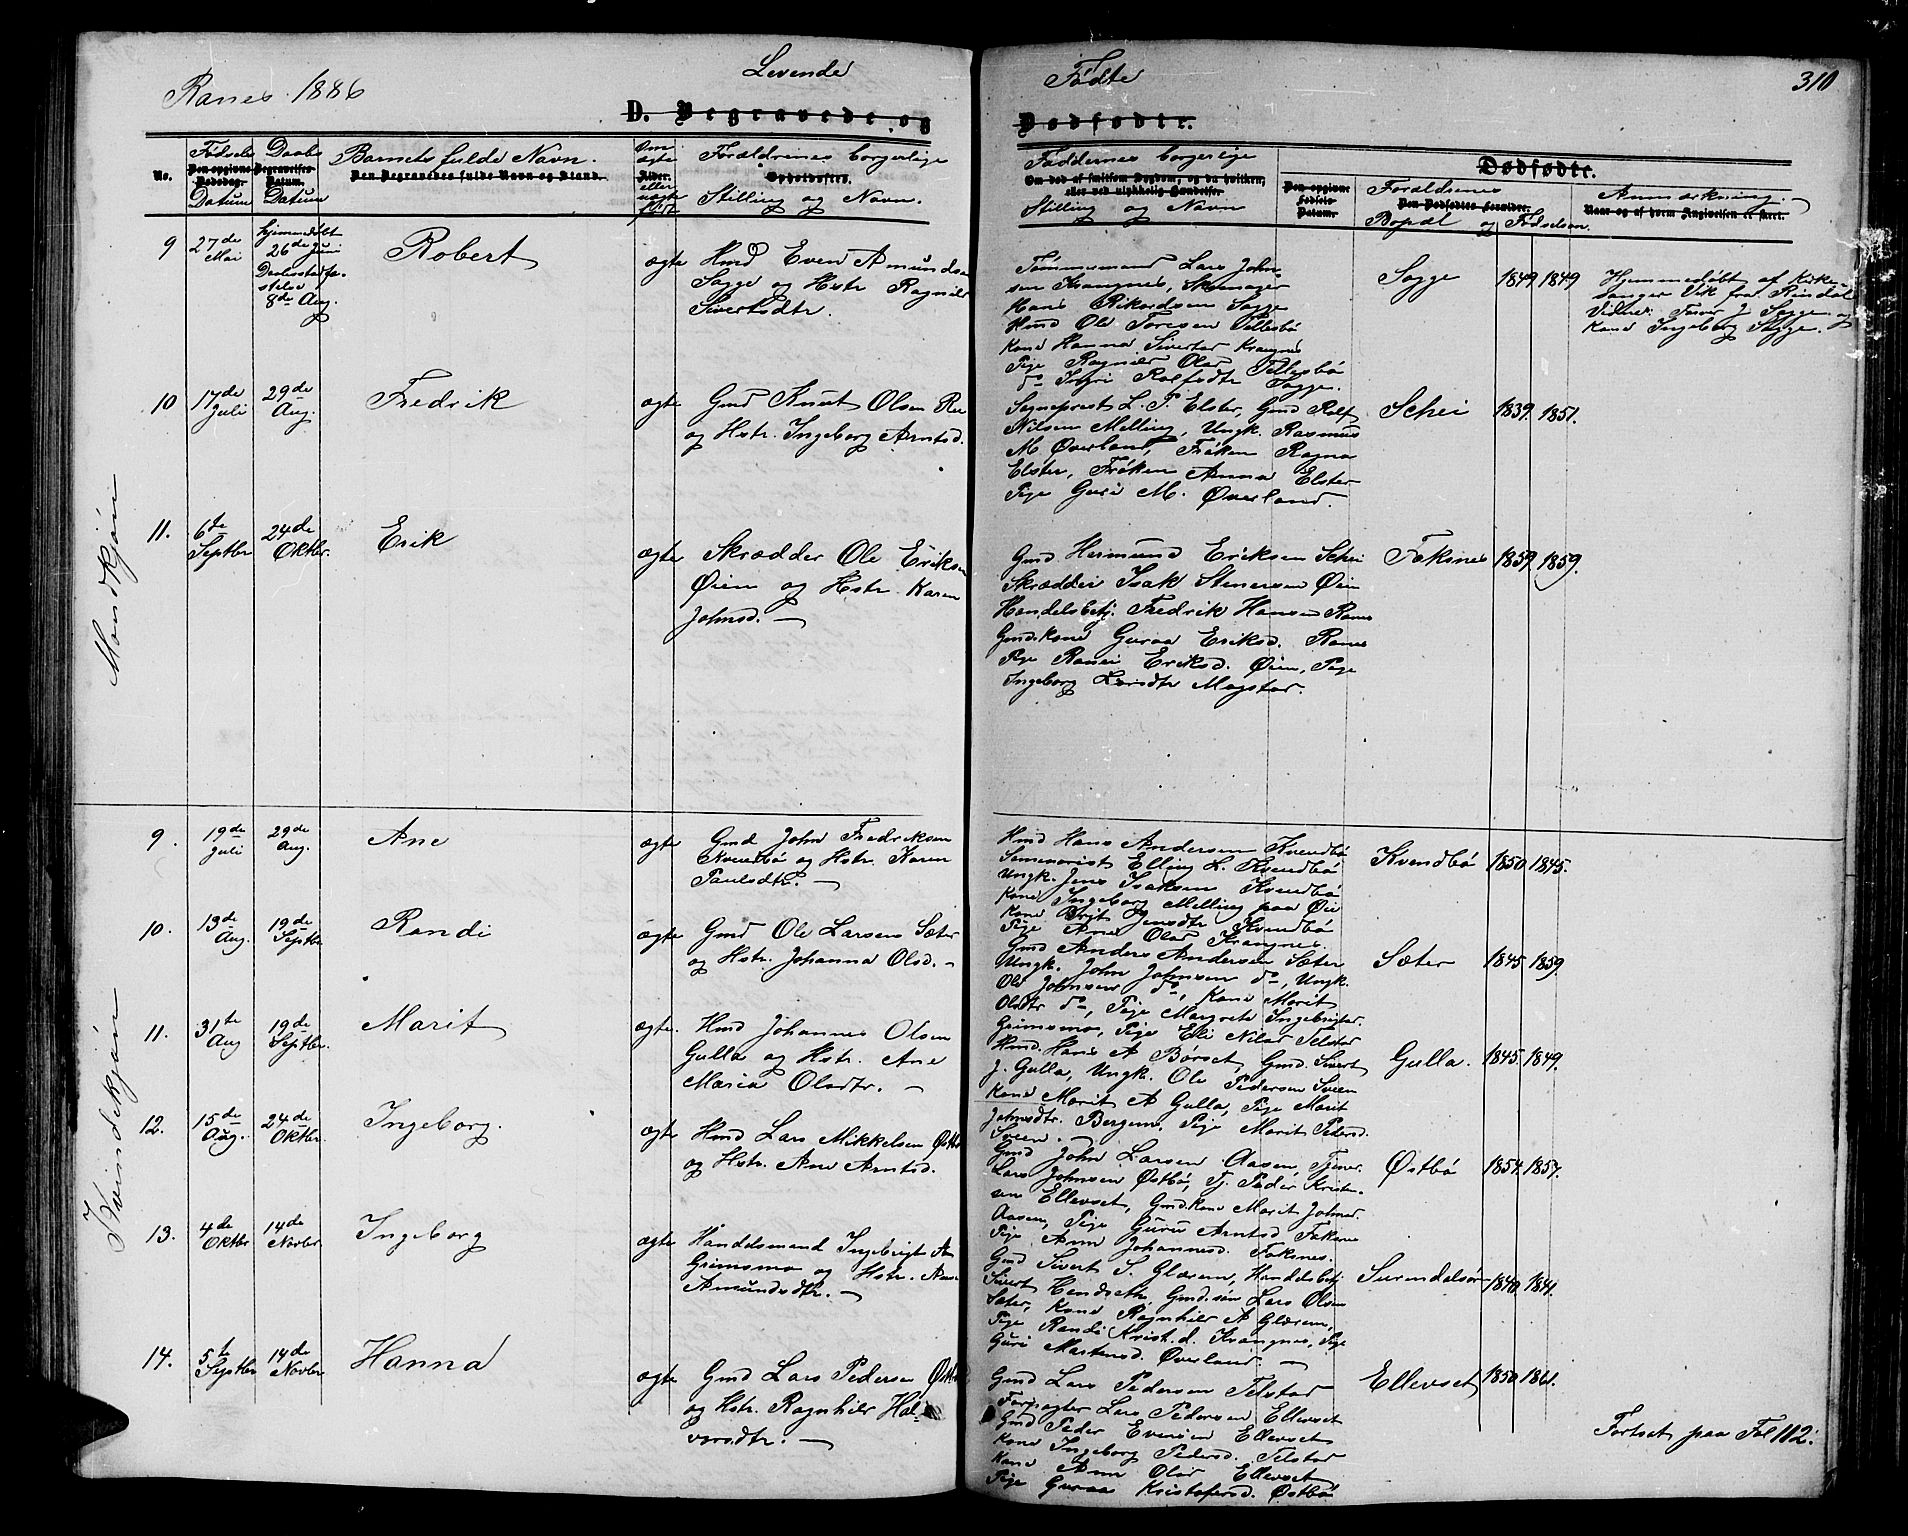 Ranes 1886
Levende
Fødte
310
D. Begravede og
Dødfødte.
No.
Fødsels
Datum
Daabs
Datum
Barnets fulde Navn.
Den Begravedes fulde Navn og Stand.
Om
ægte
eller
uægte
født
Forældrenes borgerlige
Opholdssted.
Stilling og Navn.
Faddernes borgerlige
Om død af smitsom Sygdom, og da hvilken,
eller ved ulykkelig Hændelse.
Stilling og Navn
Dødfødte.
Den opgivne
Fødsels
Datum.
Forældrenes
Den Dødfødtes Forældre.
Bopæl og Fødselsaar
Anmærkning.
Naar og af hvem Angivelsen er skeet.
Mandkjøn
9
27de
Mai
hjemmedøbt
26de Juni
Daabsstadfæ-
stelse
8de Aug.
Robert
ægte
Hmd Even Amundsen
Sogge og Hstr Ragnild
Sivertsdtr.
Tømmermand Lars John-
sen Krangnes, Skomager
Hans Rikardsen Sogge
Hmd Ole Toresen Tellesbø
Kone Hanna Sivertsd Krangnes
Pige Ragnild Olsd Tellesbø
do Ingri Rolfsdtr Sogge.
Sogge
1849 1849
Hjemmedøbt af Kirke-
sanger Vik fra Rindal
Vidner: Iver J Sogge og
Kone Ingeborg Sogge.
10
17de
Juli
29de
Aug.
Fredrik
ægte
Gmd Knut Olsen
og Hstr. Ingeborg Arntsd.
Sogneprest L. P. Elster, Gmd Rolf
Nilsen Melling, Ungk. Rasmus
M Øverland, Frøken Ragna
Elster, Frøken Anna Elster
Pige Guri M. Øverland.
Schei
1839. 1851.
11.
6te
Septbr
24de
Oktbr.
Erik
ægte
Skrædder Ole Eriksen
Øien og Hstr. Karen
Johnsd. —
Gmd. Hermund Eriksen Schei
Skrædder Isak Stenersen Øien
Handelsbetj. Fredrik Hansen Ranes
Gmd.kone Guraa Eriksd. Ranes
Pige Ranei Eriksd. Øien, Pige
Ingeborg Larsdtr Mogstad.
Foksnes
1859. 1859.
Kvindekjøn
9.
19de
Juli
29de
Aug.
Ane
ægte
Gmd John Fredriksen
Kvendbø og Hstr. Karen
Paulsdtr. —
Hmd Hans Andersen Kvendbø
Seminarist Elling L. Kvendbø
Ungk. Jens Isaksen Kvendbø
Kone Ingeborg Melling paa Øie
Kone Brit Jensdtr Kvendbø
Pige Ane Olsd Krangnes.
Kvendbø
1850 1845.
10.
13de
Aug.
19de
Septbr
Randi
ægte
Gmd Ole Larsen Sæter
og Hstr. Johanna Olsd. —
Gmd Anders Andersen Sæter
Ungk. John Johnsen do, Ungk.
Ole Johnsen do, Kone Marit
Olsdtr do, Pige Margrete Ingebrigtsd.
Grimsmo, Pige Eli Nilsd Telstad
Sæter
1845 1859.
11.
31te
Aug
19de
Septbr.
Marit
ægte.
Hmd Johannes Olsen
Gulla og Hstr. Ane
Maria Olsdtr. —
Hmd. Hans A Børset, Gmd. Sivert
J. Gulla, Ungk. Ole Pedersen Sveen
Kone Marit A Gulla, Pige Marit
Johnsdtr. Bergem, Pige Marit Pedersd.
Sveen. —
Gulla.
1845. 1849.
12.
15de
Aug.
24de
Oktbr.
Ingeborg.
ægte
Hmd Lars Mikkelsen Østbø
og Hstr. Ane Arntsd.
Gmd John Larsen Aasen, Tjener
Lars Johnsen Østbø, Tj. Peder Kristen-
sen Ellevset, Gmd.kone Marit Johnsd.
Aasen, Pige Guru Arntsd Foksnes
Pige Ann Johannesd. Foksnes.
Østbø
1854. 1857.
13.
4de
Oktbr
14de
Novbr
Ingeborg
ægte
Handelsmand Ingebrigt A
Grimsmo og Hstr. Ane
Amundsdtr. —
Gmd Sivert S. Glærem, Handelsbetj.
Sivert Hendseth, Gmd.søn Lars Olsen
Sæter, Kone Ragnhild A Glærem,
Pige Randi Krist.d. Krangnes, Pige
Guri Mortensd. Øverland. —
Surendalsør
1840. 1841.
14.
5te
Septbr
14de
Novbr
Hanna
ægte
Gmd Lars Pedersen Østbø
og Hstr. Ragnhild Hal-
vorsdtr. —
Gmd Lars Pedersen Telstad
Forpagter Lars Pedersen Ellevset
Gmd Peder Evensen Ellevset
Kone Ingeborg Pedersd. Telstad
Kone Ann Olsd Ellevset
Pige Guraa Kristofersd. Østbø
Ellevset
1850 1861.
Fortsat paa Fol 112.